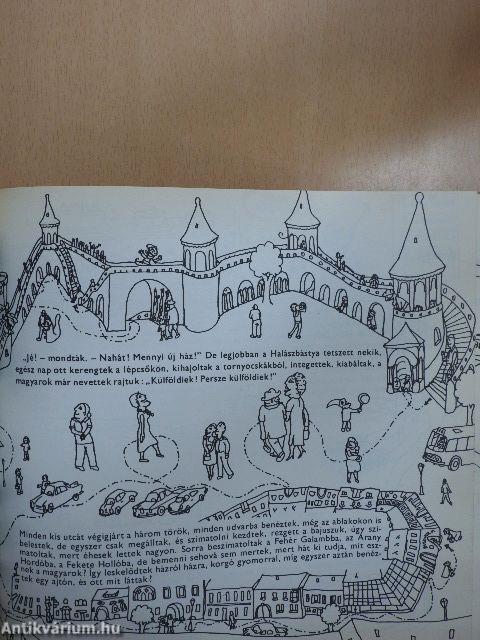 „Jé! – mondták. – Nahát! Mennyi új ház!" De legjobban a Halászbástya tetszett nekik,
egész nap ott kerengtek a lépcsőkön, kihajoltak a tornyocskákból, integettek, kiabáltak, a
magyarok már nevettek rajtuk: „Külföldiek! Persze külföldiek!"
Minden kis utcát végigjárt a három török, minden udvarba benéztek, még az ablakokon is
belestek, de egyszer csak megálltak, és szimatolni kezdtek, rezgett a bajuszuk, úgy szi-
matoltak, mert éhesek lettek nagyon. Sorra beszimatoltak a Fehér Galambba, az Arany
Hordóba, a Fekete Hollóba, de bemenni sehová sem mertek, mert hát ki tudja, mit esz-
nek a magyarok? Így leskelődtek házról házra, korgó gyomorral, míg egyszer aztán benéz-
tek egy ajtón, és ott mit láttak!
Antikvárium.hu